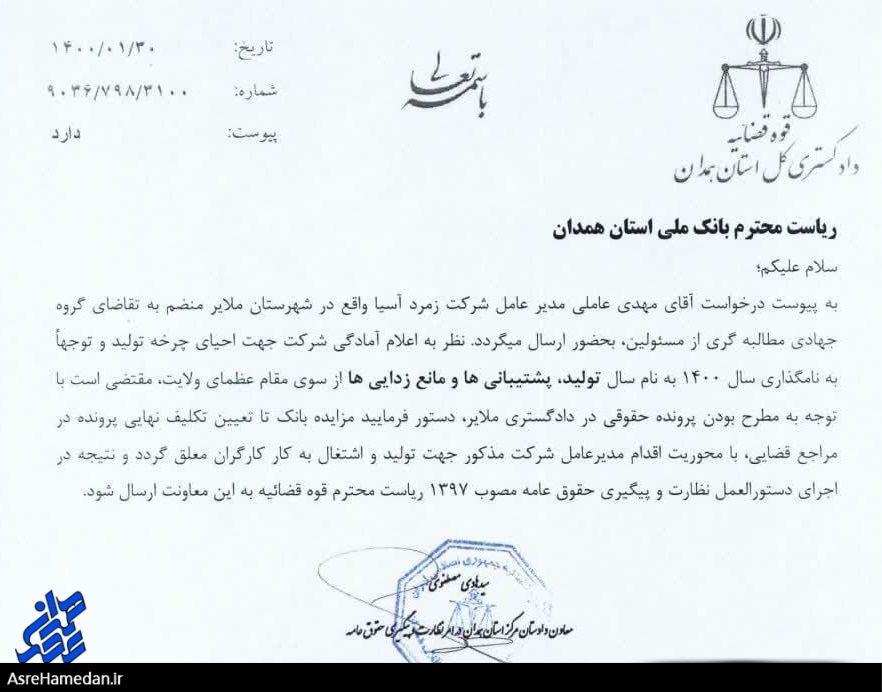 قوه قضائیه
دادگستری کل استان همدان
باسمه تعالی
تاریخ: ۱۴۰۰/۰۱/۳۰
شماره: ۹۰۳۶/۷۹۸/۳۱۰۰
پیوست: دارد
ریاست محترم بانک ملی استان همدان
سلام علیکم؛
به پیوست درخواست آقای مهدی عاملی مدیر عامل شرکت زمرد آسیا واقع در شهرستان ملایر منضم به تقاضای گروه
جهادی مطالبه گری از مسئولین، بحضور ارسال میگردد. نظر به اعلام آمادگی شرکت جهت احیای چرخه تولید و توجهاً
به نامگذاری سال ۱۴۰۰ به نام سال تولید، پشتیبانی ها و مانع زدایی ها از سوی مقام عظمای ولایت، مقتضی است با
توجه به مطرح بودن پرونده حقوقی در دادگستری ملایر، دستور فرمایید مزایده بانک تا تعیین تکلیف نهایی پرونده در
مراجع قضایی، با محوریت اقدام مدیرعامل شرکت مذکور جهت تولید و اشتغال به کار کارگران معلق گردد و نتیجه در
اجرای دستورالعمل نظارت و پیگیری حقوق عامه مصوب ۱۳۹۷ ریاست محترم قوه قضائیه به این معاونت ارسال شود.
سیدهادی مصطفوی
معاون دادستان مرکز استان همدان در امر نظارت و پیگیری حقوق عامه
AsreHamedan.ir